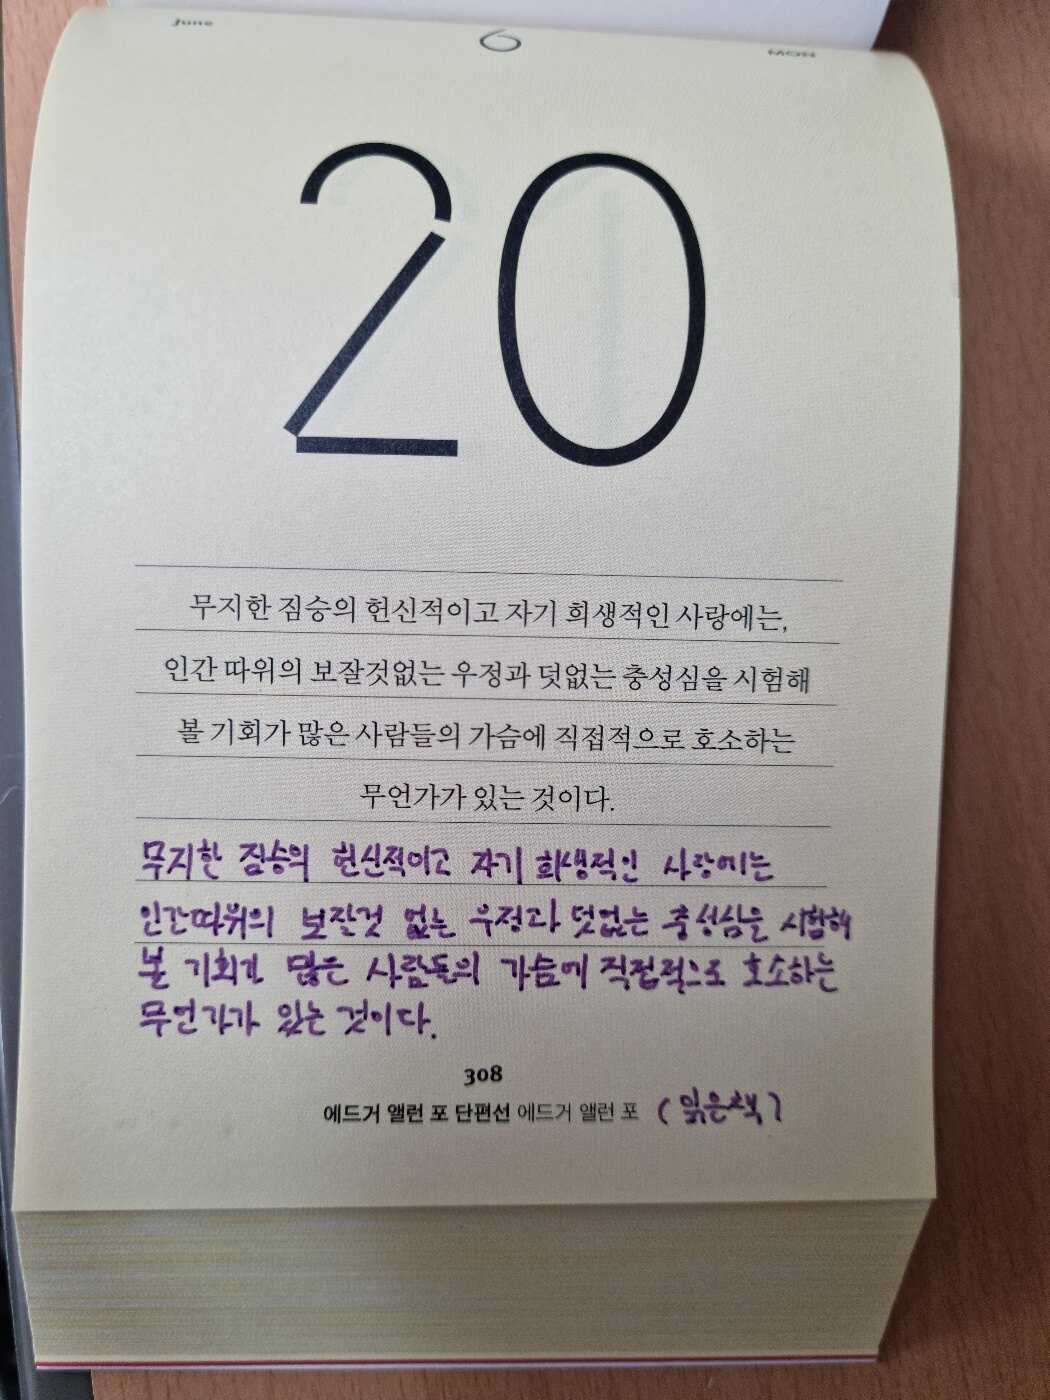 June 6 MON
20
무지한 짐승의 헌신적이고 자기 희생적인 사랑에는,
인간 따위의 보잘것없는 우정과 덧없는 충성심을 시험해
볼 기회가 많은 사람들의 가슴에 직접적으로 호소하는
무언가가 있는 것이다.
무지한 짐승의 헌신적이고 자기 희생적인 사랑에는
인간따위의 보잘것 없는 우정과 덧없는 충성심을 시험해
볼 기회가 많은 사람들의 가슴에 직접적으로 호소하는
무언가가 있는 것이다.
308
에드거 앨런 포 단편선 에드거 앨런 포 (읽은책)